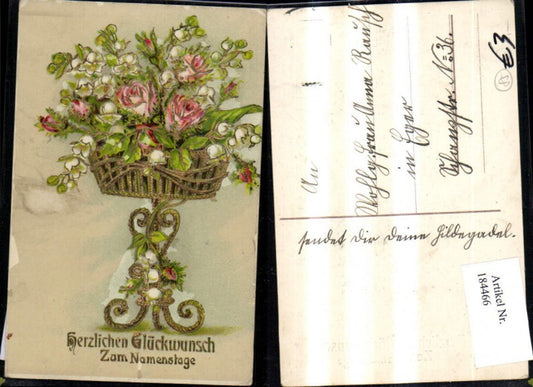 Herzlichen Glückwunsch
Zum Namenstage
An
Wohlg. Frau Anna Rausch
in Eger
Schanzstr. No 36.
sendet Dir Deine Hildegadel.
Artikel Nr.
184466